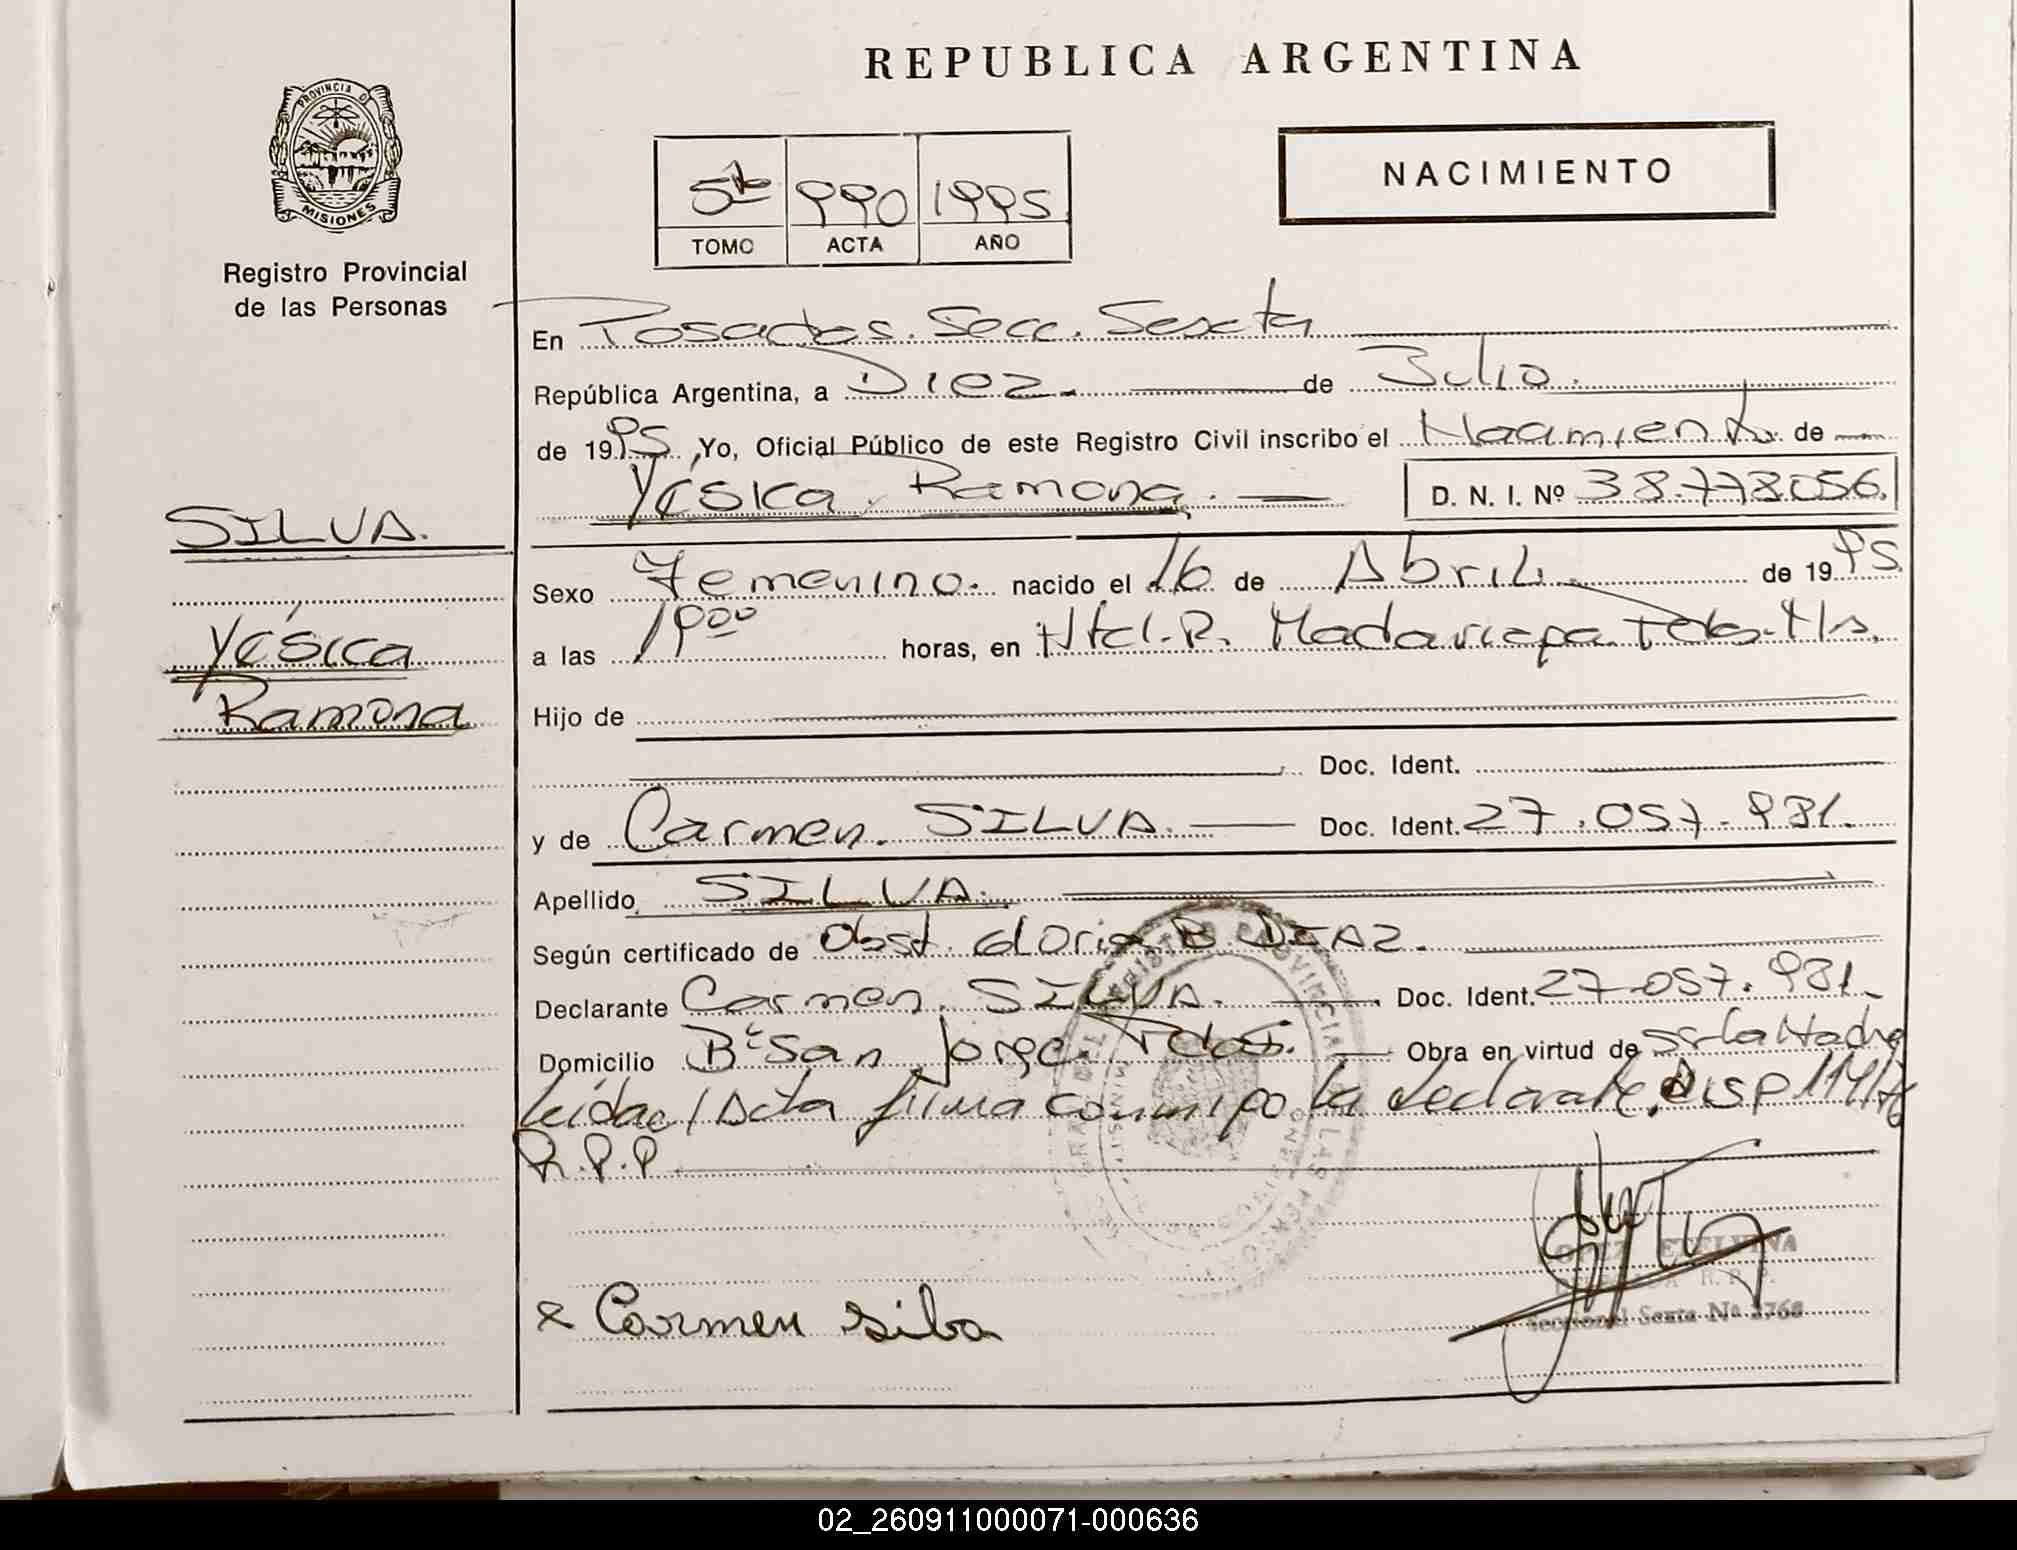 REPUBLICA ARGENTINA
PROVINCIA D
MISIONES
Registro Provincial
de las Personas
5to 990 1995
TOMO ACTA AÑO
NACIMIENTO
En Posadas. Secc. Sexta
República Argentina, a Diez. de Julio.
de 1995, Yo, Oficial Público de este Registro Civil inscribo el Nacimiento. de
Yésica Ramona. D. N. I. Nº 38.778056.
SILVA.
Yésica
Ramona
Sexo Femenino. nacido el 16 de Abril. de 1995
a las 1900 horas, en Htal. R. Madariaga Pdas. Ms.
Hijo de
Doc. Ident.
y de Carmen. SILVA. Doc. Ident. 27.057.931.
Apellido SILVA.
Según certificado de Obst. Gloria B DIAZ.
Declarante Carmen. SILVA. Doc. Ident. 27.057.931.
Domicilio Bº San Jorge. Pdas. Obra en virtud de ser la Madre
leída e/ Acta firma conmigo la declarante. DISP
R.P.P
x Carmen silba
EDELVINA
R. P. P.
Seccional Sexta Nº 2768
02_260911000071-000636